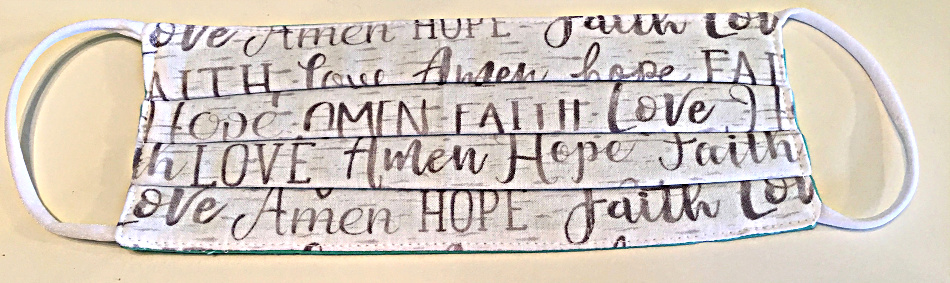 ove Amen HOPE Faith Lov
AITH love Amen hope FAI
Hope AMEN FAITH Love
th LOVE Amen Hope Faith
ove Amen HOPE Faith Lov